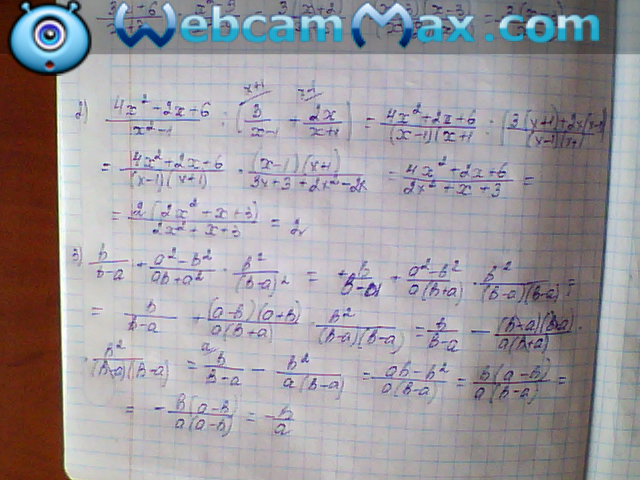 WebcamMax.com
2) (4x²+2x+6)/(x²-1) : (3/(x-1) + 2x/(x+1)) = (4x²+2x+6)/((x-1)(x+1)) : (3(x+1)+2x(x-1))/((x-1)(x+1))
= (4x²+2x+6)/((x-1)(x+1)) · ((x-1)(x+1))/(3x+3+2x²-2x) = (4x²+2x+6)/(2x²+x+3) =
= 2(2x²+x+3)/(2x²+x+3) = 2
3) b/(b-a) + (a²-b²)/(ab+a²) · b²/(b-a)² = b/(b-a) + (a²-b²)/(a(b+a)) · b²/((b-a)(b-a)) =
= b/(b-a) + ((a-b)(a+b))/(a(b+a)) · b²/((b-a)(b-a)) = b/(b-a) - ((b-a)(b+a))/(a(b+a)) ·
· b²/((b-a)(b-a)) = b/(b-a) - b²/(a(b-a)) = (ab-b²)/(a(b-a)) = b(a-b)/(a(b-a)) =
= - b(a-b)/(a(a-b)) = -b/a